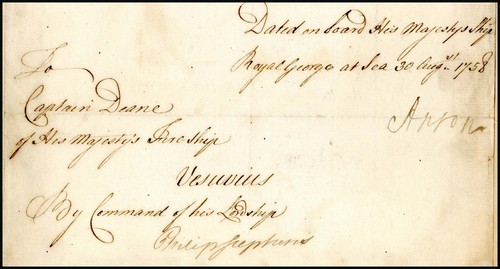 Dated on board His Majestys Ship
Royal George at Sea 30 Augst. 1758
Anson
To
Captain Deane
of His Majesty's Fire Ship
Vesuvius
By Command of his Lordship
Philip Stephens